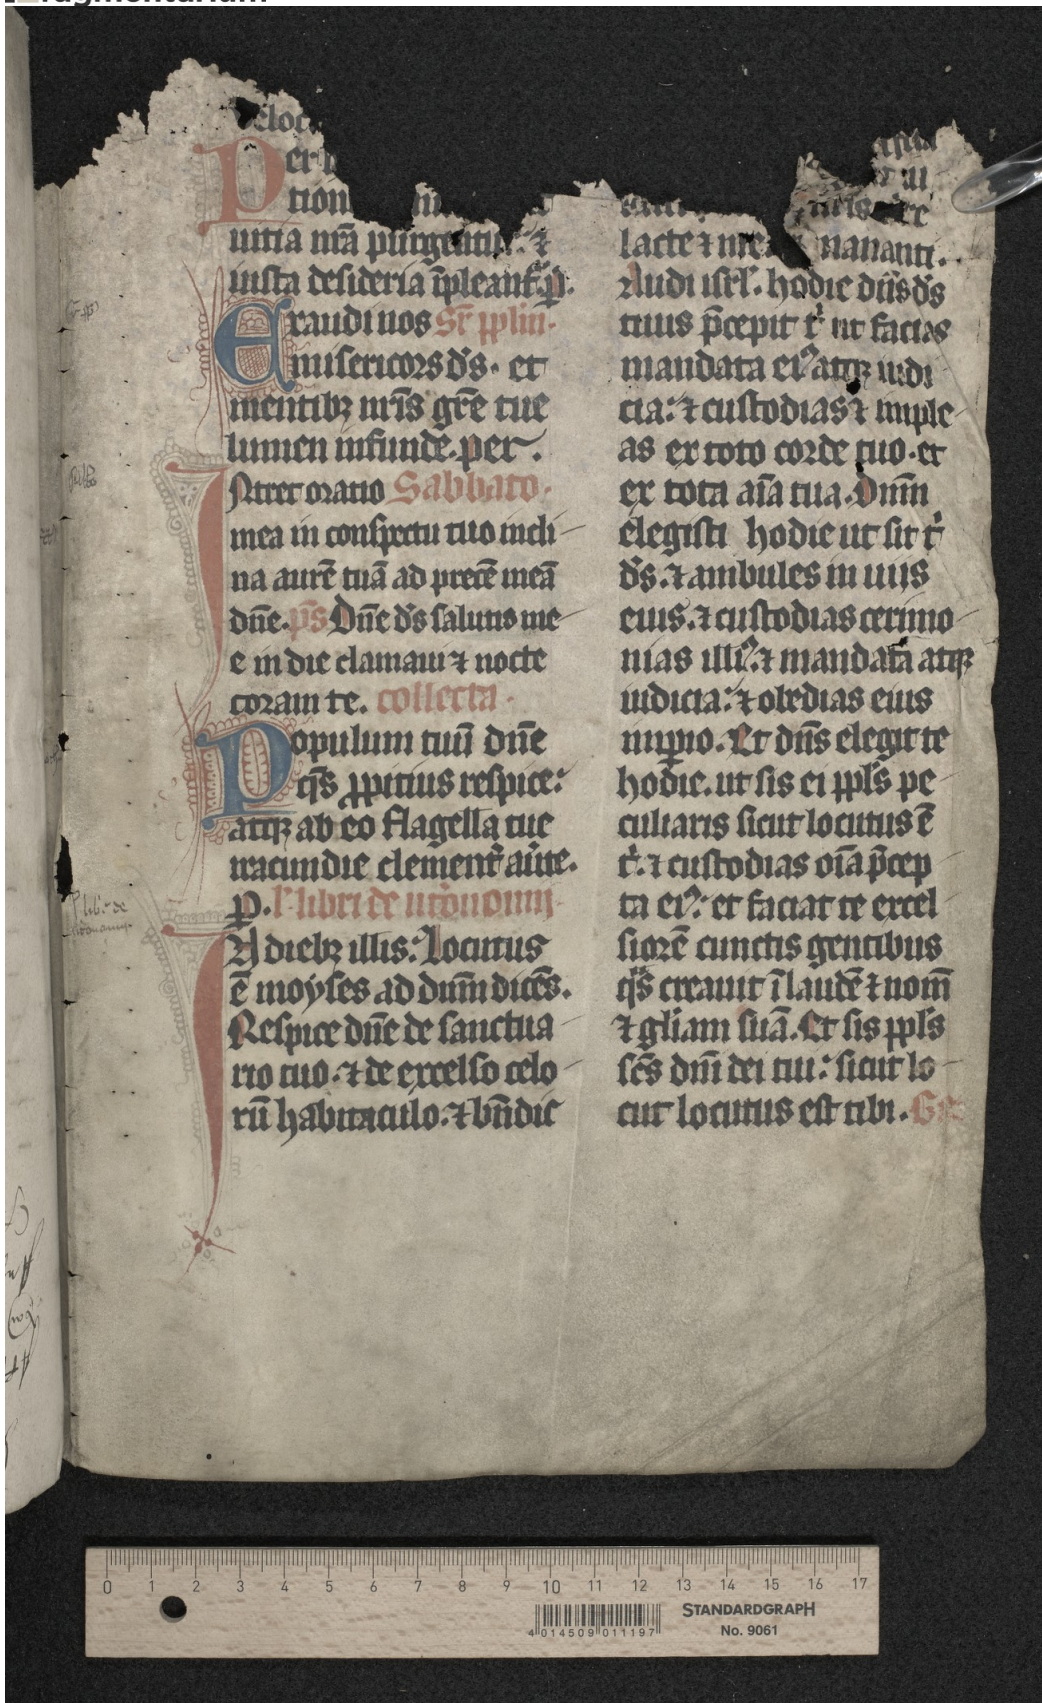 eloc
Per
tion
uitia nrā purgentur: ⁊
iusta desideria īpleant᷑. p̱.
Exaudi nos Sr̄ pplm̄.
misericors d̄s. et
mentibꝫ nr̄is gr̄e tue
lumen infunde. per.
INtret oratio Sabbato.
mea in conspectu tuo incli
na aurē tuā ad precē meā
dn̄e. p̄s Dn̄e d̄s salutis me
e in die clamaui ⁊ nocte
coram te. collecta.
Populum tuū dn̄e
q̄s ꝓpitius respice:
atqꝫ ab eo flagella tue
iracundie clement᷑ aūte.
p̱. l' libri deut̓onomij
IN diebꝫ illis: Locutus
ē moyses ad dn̄m dicēs.
Respice dn̄e de sanctua
rio tuo. ⁊ de excelso celo
rū habitaculo. ⁊ bn̄dic
lacte ⁊ mel mananti.
Audi isrl̄. hodie dn̄s d̄s
tuus p̄cepit t̓ ut facias
mandata eiꝰ atqꝫ iudi
cia: ⁊ custodias ⁊ imple
as ex toto corde tuo. et
ex tota aīa tua. Dn̄m
elegisti hodie ut sit t̓
d̄s. ⁊ ambules in uiis
eius. ⁊ custodias cerimo
nias illiꝰ. ⁊ mandata atqꝫ
iudicia: ⁊ obedias eius
imꝑio. Et dn̄s elegit te
hodie. ut sis ei ppl̄s pe
culiaris sicut locutus ē
t̓. ⁊ custodias oīa p̄cep
ta eiꝰ: et faciat te excel
siorē cunctis gentibus
q̄s creauit ī laudē ⁊ nom̄
⁊ gl̄iam suā. Et sis ppl̄s
sc̄s dn̄i dei tui: sicut lo
cut locutus est tibi. Gr̄
fragmentarium
0 1 2 3 4 5 6 7 8 9 10 11 12 13 14 15 16 17
STANDARDGRAPH
No. 9061
4 014509 011197